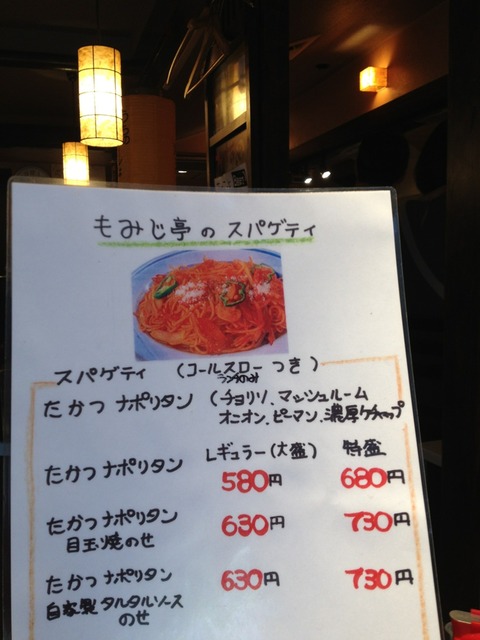 もみじ亭のスパゲティ
スパゲティ (コールスローつき)
ランチのみ
たかつナポリタン (チョリソ、マッシュルーム
オニオン、ピーマン、濃厚ケチャップ
レギュラー(大盛) 特盛
たかつナポリタン 580円 680円
たかつナポリタン 630円 730円
目玉焼のせ
たかつナポリタン 630円 730円
自家製タルタルソース
のせ